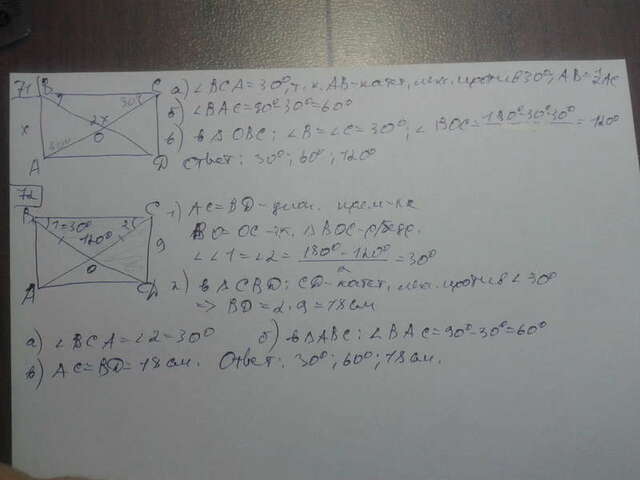 71
B C
30°
x 2x
O
A D
а) ∠BCA=30°, т.к. AB-катет, леж. против 30°, AB=1/2AC
б) ∠BAC=90°-30°=60°
в) в △OBC: ∠B=∠C=30°; ∠BOC=180°-30°-30°=120°
Ответ: 30°; 60°; 120°
72
B C
1=30° 2
120° 9
O
A D
1) AC=BD-диаг. прям-ка
BO=OC-зн. △BOC-р/бедр.
∠1=∠2=180°-120°/2=30°
2) в △CBD: CD-катет, леж. против ∠30°
=> BD=2·9=18см
а) ∠BCA=∠2=30° б) в△ABC: ∠BAC=90°-30°=60°
в) AC=BD=18см. Ответ: 30°; 60°; 18см.